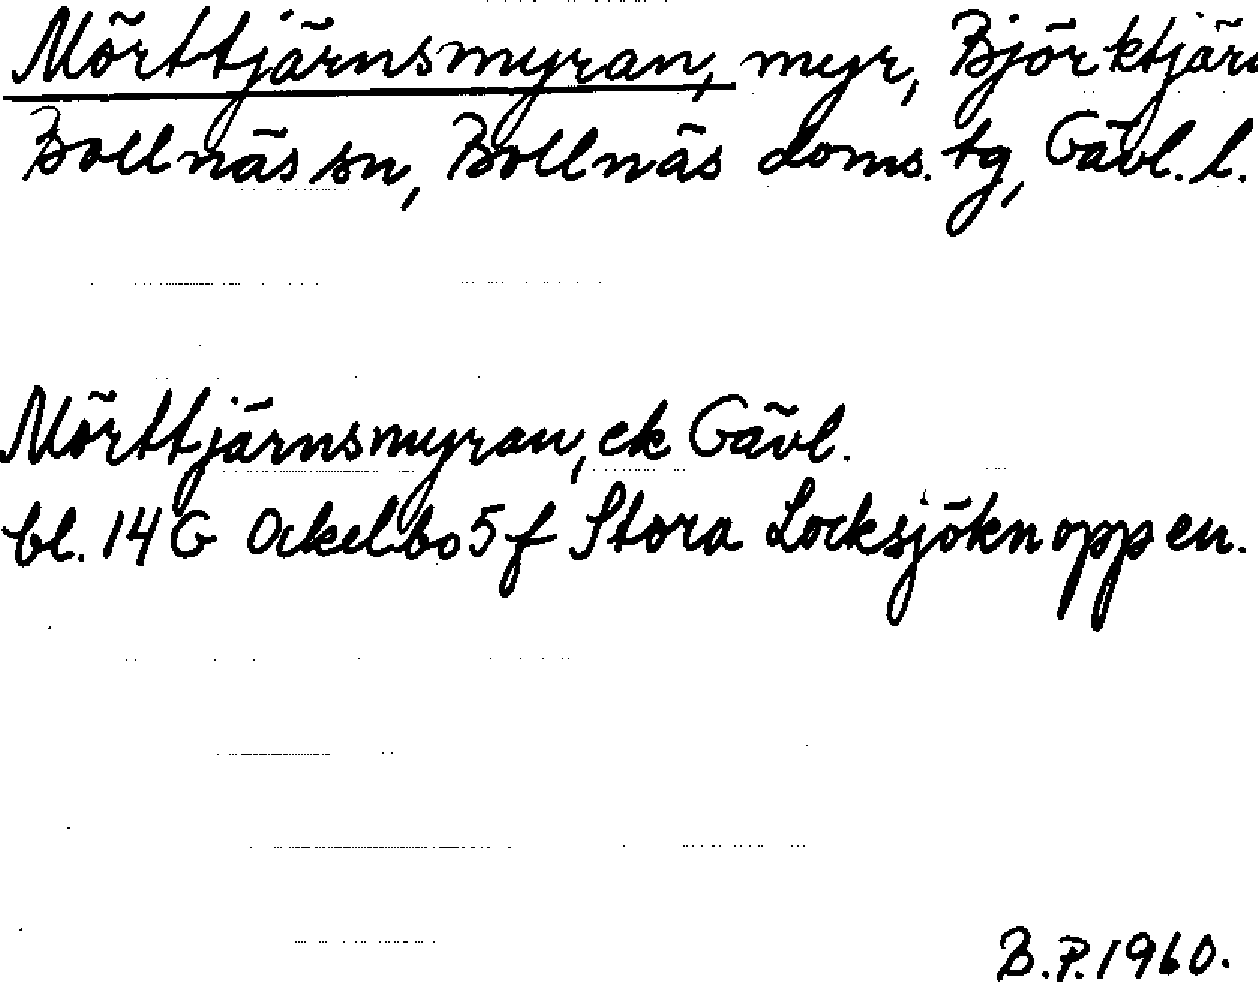 Mörttjärnsmyran, myr, Björktjära
Bollnäs sn, Bollnäs doms. tg, Gävl. l.
Mörttjärnsmyran, ek Gävl.
bl. 14 G Ockelbo 5 f Stora Locksjöknoppen.
B.P. 1960.